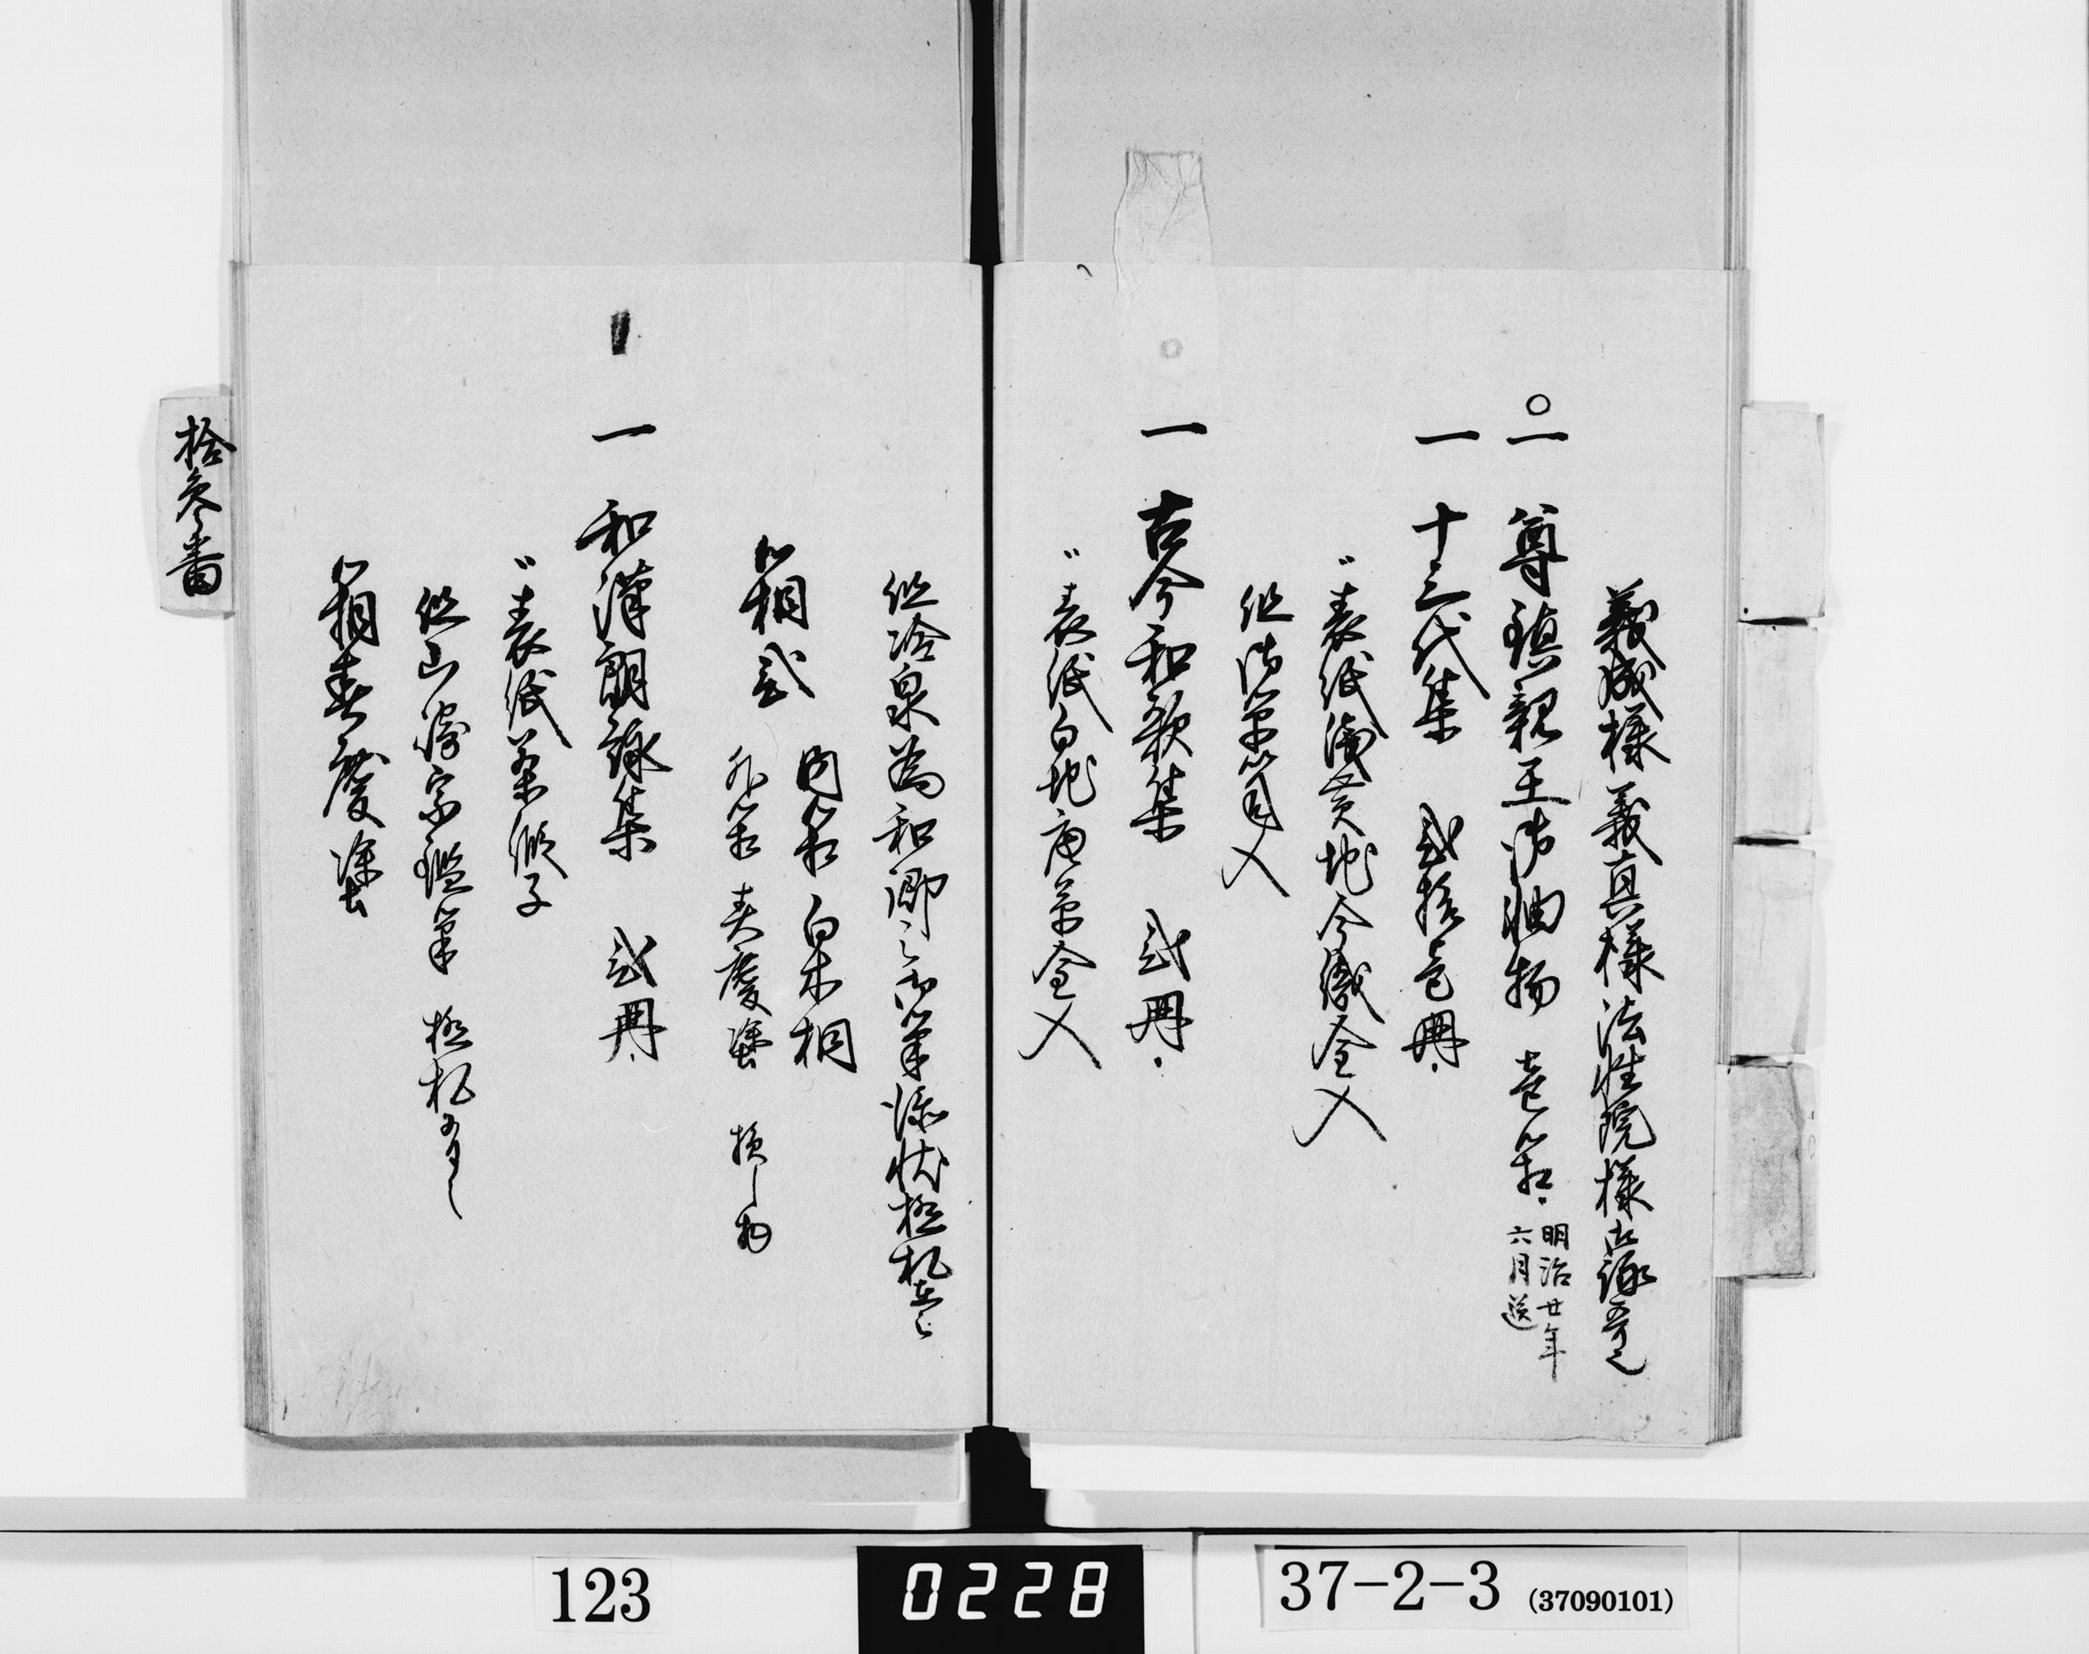 義成様義真様法性院様御詠哥之
○一 尊鎮親王御軸物 壱箱 明治廿年
六月送
一 十三代集 弐拾壱冊
〃表紙浅黄地今織金入
但御箪笥入
一 古今和歌集 弐冊
〃表紙白地唐草金入
但冷泉為和卿之御筆添状極札在之
箱弐 内箱 白木桐
外箱 春慶塗 損し物
一 和漢朗詠集 弐冊
〃表紙茶緞子
但山崎宗鑑筆 極札有之
箱春慶塗
拾参番
123
0228
37-2-3 (37090101)